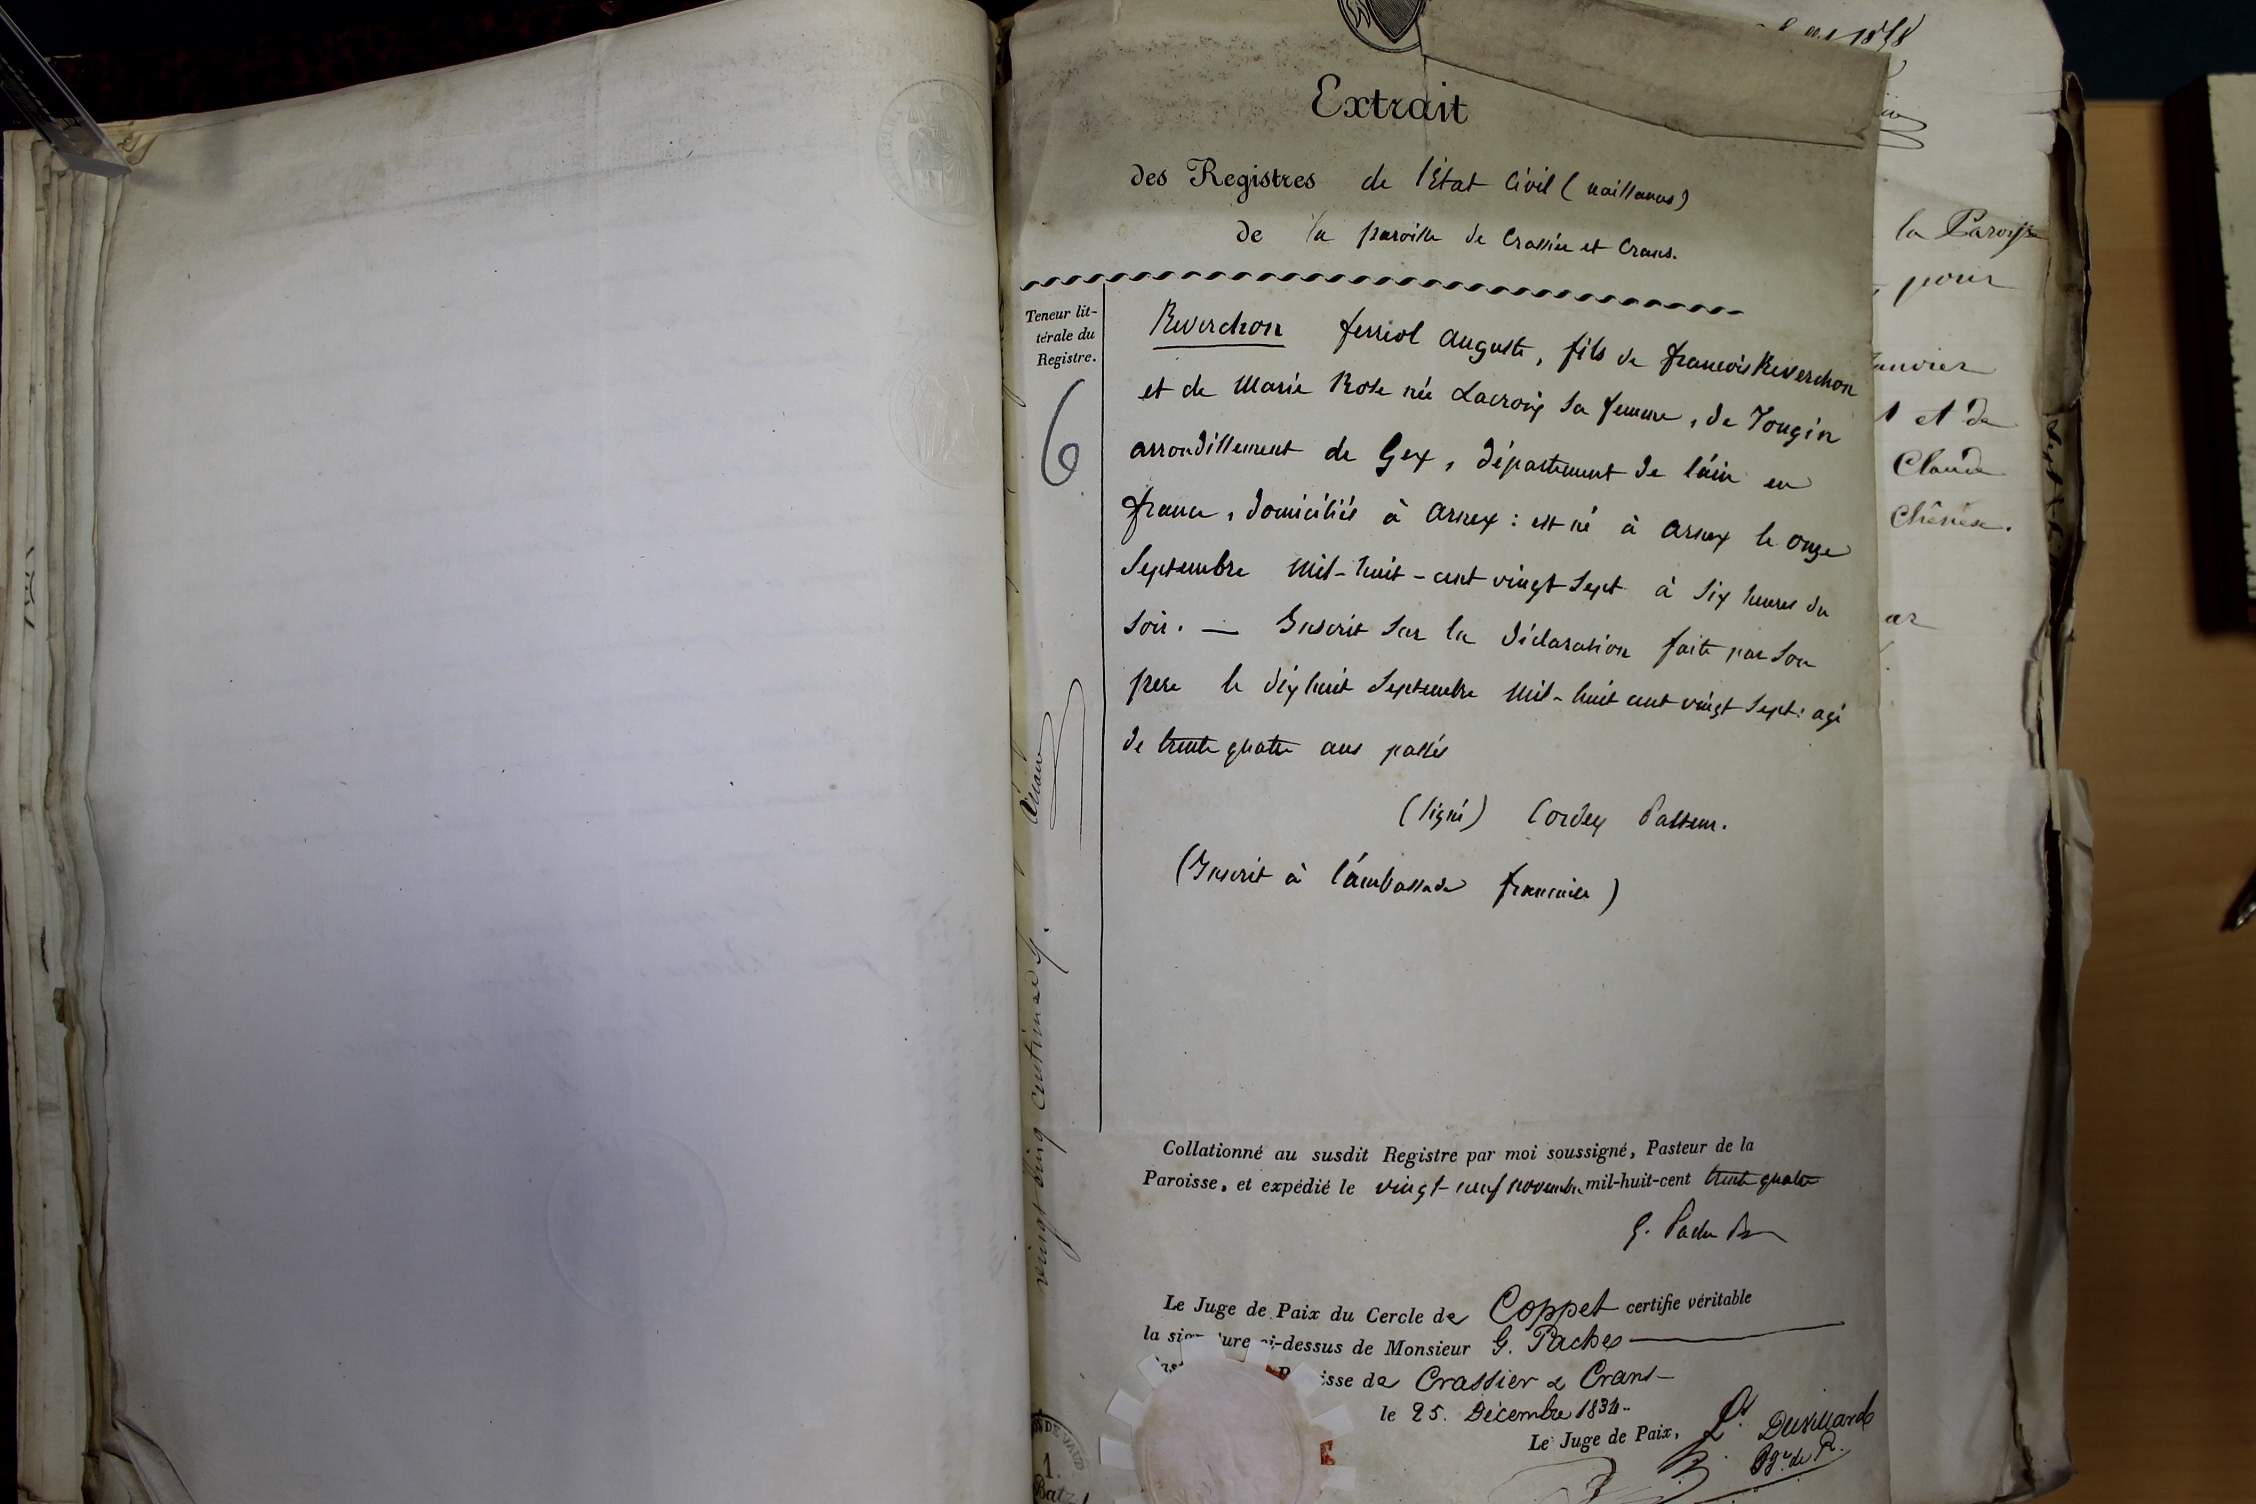 Extrait
des Registres de l'Etat Civil (naissances)
de la paroisse de Crassier et Crans.
Teneur lit-
térale du
Registre.
6
Reverchon ferréol Auguste, fils de françois Reverchon
et de Marie Rose née Lacroix sa femme, de Tougin
arrondissement de Gex, département de l'ain en
france, domiciliés à Arnex : est né à Arnex le onze
Septembre mil-huit-cent vingt sept à six heures du
soir. — Inscrit sur la déclaration faite par son
père le dix huit Septembre mil-huit cent vingt sept : agé
de trente quatre ans passés
(signé) Cordey Pasteur.
(Inscrit à l'ambassade française)
Collationné au susdit Registre par moi soussigné, Pasteur de la
Paroisse, et expédié le vingt-neuf novembre mil-huit-cent trente quatre
Le Juge de Paix du Cercle de Coppet certifie véritable
la ci-dessus de Monsieur G. Pache
de Crassier & Crans
le 25. Décembre 1834.
Le Juge de Paix, Duvillard
vingt cinq centimes
1
Batz
la Paroisse
pour
et de
Claude
Chênex.